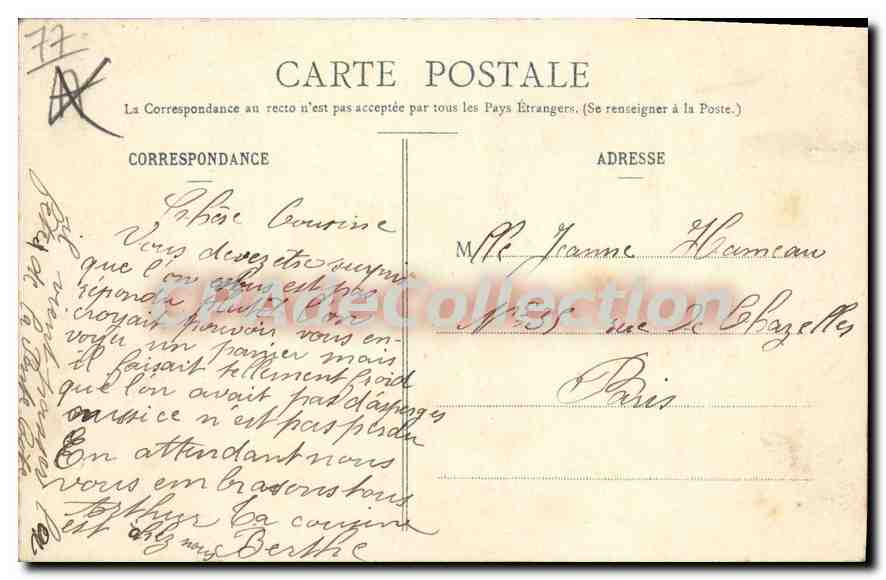 77
CARTE POSTALE
La Correspondance au recto n'est pas acceptée par tous les Pays Étrangers. (Se renseigner à la Poste.)
CORRESPONDANCE
Chère Cousine
Vous devez etre surpri
que l'on vous est pas
repondu plutot l'on
croyait pouvoir vous en-
voyu un panier mais
il faisait tellement froid
que l'on avait pas d'asperges
aussi ce n'est pas perdu
En attendant nous
vous embrasons tous
Arthur Ta cousine
est chez nous Berthe
il vient
ADRESSE
Mlle Jeanne Hameau
No 35 rue De Chazelles
Paris
CPdeCollection